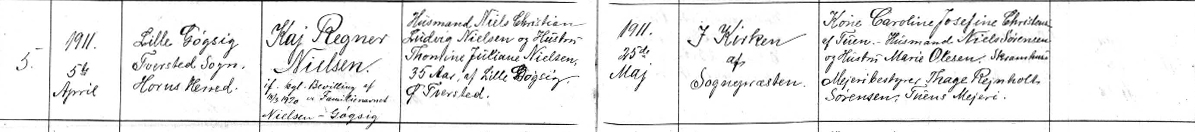 5.
1911.
5te
April
Lille Gøgsig
Tversted Sogn.
Horns Herred.
Kaj Regner
Nielsen.
if. kgl. Bevilling af
1970 a Familienavnet
Nielsen-Gøgsig
Husmand Niels Christian
Ludvig Nielsen og Hustru
Thomine Juliane Nielsen,
35 Aar, af Lille Gøgsig
Ø Tversted.
1911.
25de
Maj
I Kirken
af
Sognepræsten.
Kone Caroline Josefine Christens
af Tuen. Husmand Niels Sørensen
og Hustru Marie Olesen,
Mejeribestyrer Thage Rejnholt
Sørensen, Tuens Mejeri.